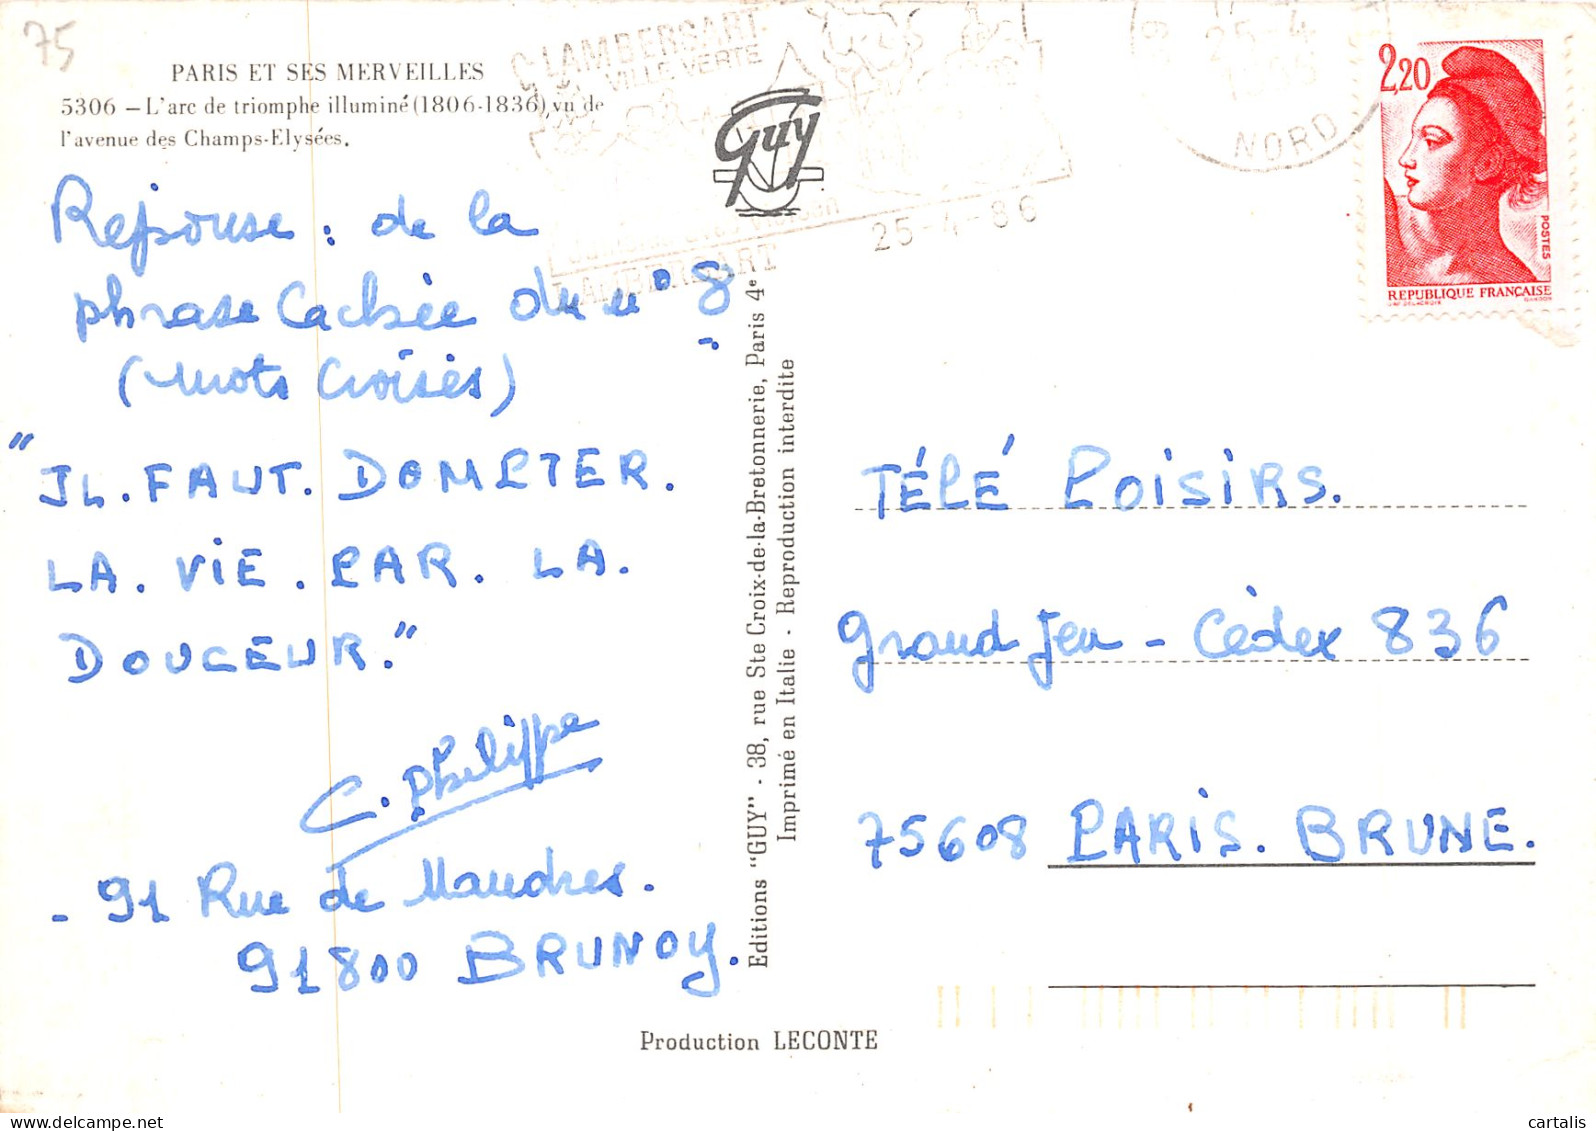 75
PARIS ET SES MERVEILLES
5306 – L'arc de triomphe illuminé (1806-1836), vu de
l'avenue des Champs-Elysées.
LAMBERSART
VILLE VERTE
LAMBERSART
25-4-86
25-4
NORD
Guy
2,20
POSTES
REPUBLIQUE FRANÇAISE
Réponse : de la
phrase Cachée du n° 8
(mots Croisés)
"JL. FAUT. DOMPTER.
LA. ViE. PAR. LA.
DOUCEUR."
C. Philippe
- 91 Rue de Mandres.
91800 BRUNOY.
Editions "GUY" - 38, rue Ste Croix-de-la-Bretonnerie, Paris 4e
Imprimé en Italie - Reproduction interdite
TÉLÉ LOiSiRS.
Grand Jeu - Cèdex 836
75608 PARiS. BRUNE.
Production LECONTE
cartalis
delcampe.net